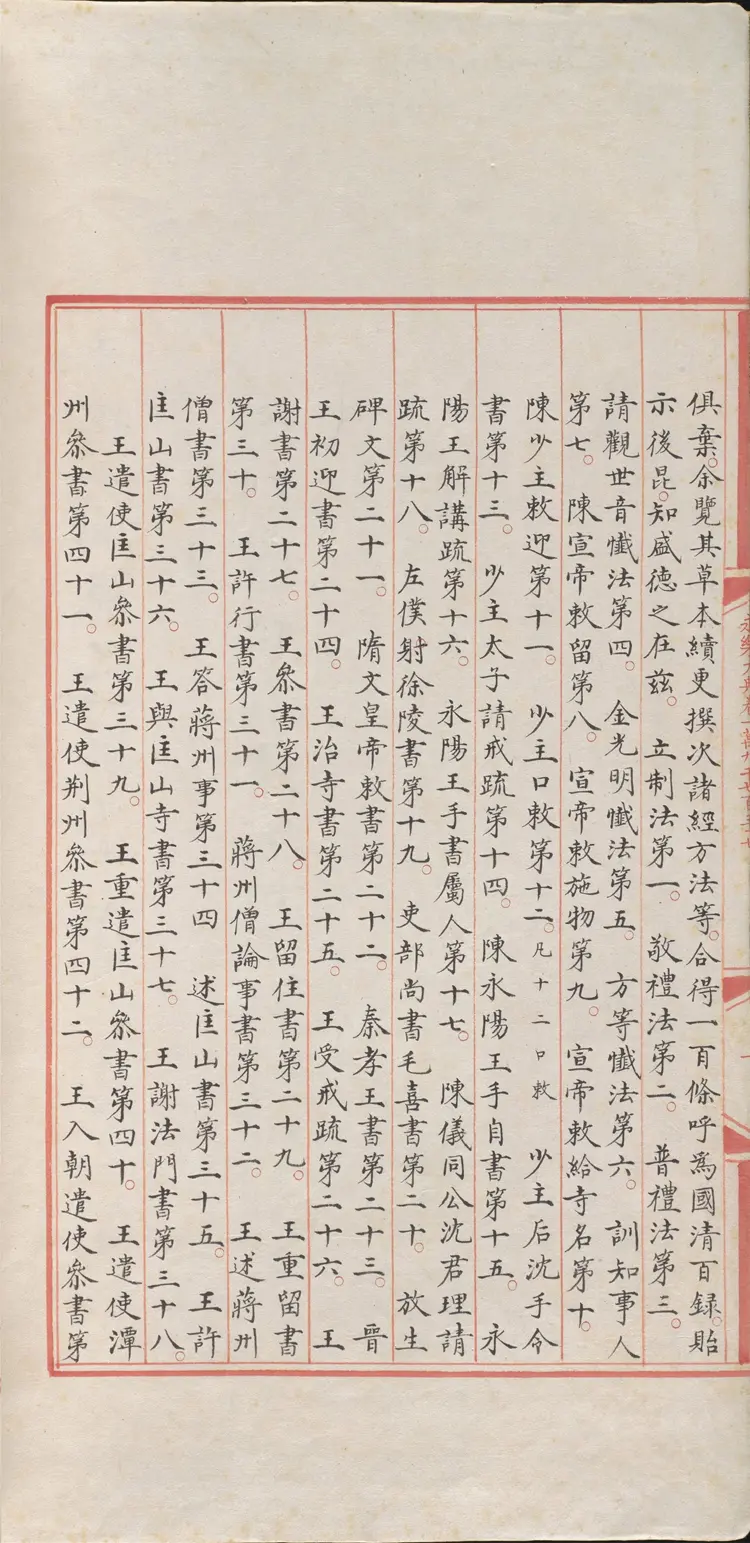 俱棄。余覽其草本續更撰次諸經方法等。合得一百條呼爲國清百錄。貽
示後昆。知盛德之在茲。　立制法第一。　敬禮法第二。　普禮法第三。
請觀世音懺法第四。　金光明懺法第五。　方等懺法第六。　訓知事人
第七。　陳宣帝敕留第八。　宣帝敕施物第九。　宣帝敕給寺名第十。
陳少主敕迎第十一。　少主口敕第十二。凡十二口敕　少主后沈手令
書第十三。　少主太子請戒疏第十四。　陳永陽王手自書第十五。　永
陽王解講疏第十六。　永陽王手書屬人第十七。　陳儀同公沈君理請
疏第十八。　左僕射徐陵書第十九。　吏部尚書毛喜書第二十。　放生
碑文第二十一。　隋文皇帝敕書第二十二。　秦孝王書第二十三。　晉
王初迎書第二十四。　王治寺書第二十五。　王受戒疏第二十六。　王
謝書第二十七。　王參書第二十八。　王留住書第二十九。　王重留書
第三十。　王許行書第三十一。　蔣州僧論事書第三十二。　王述蔣州
僧書第三十三。　王答蔣州事第三十四　述匡山書第三十五。　王許
匡山書第三十六。　王與匡山寺書第三十七。　王謝法門書第三十八。
　王遣使匡山參書第三十九。　王重遣匡山參書第四十。　王遣使潭
州參書第四十一。　王遣使荆州參書第四十二。　王入朝遣使參書第